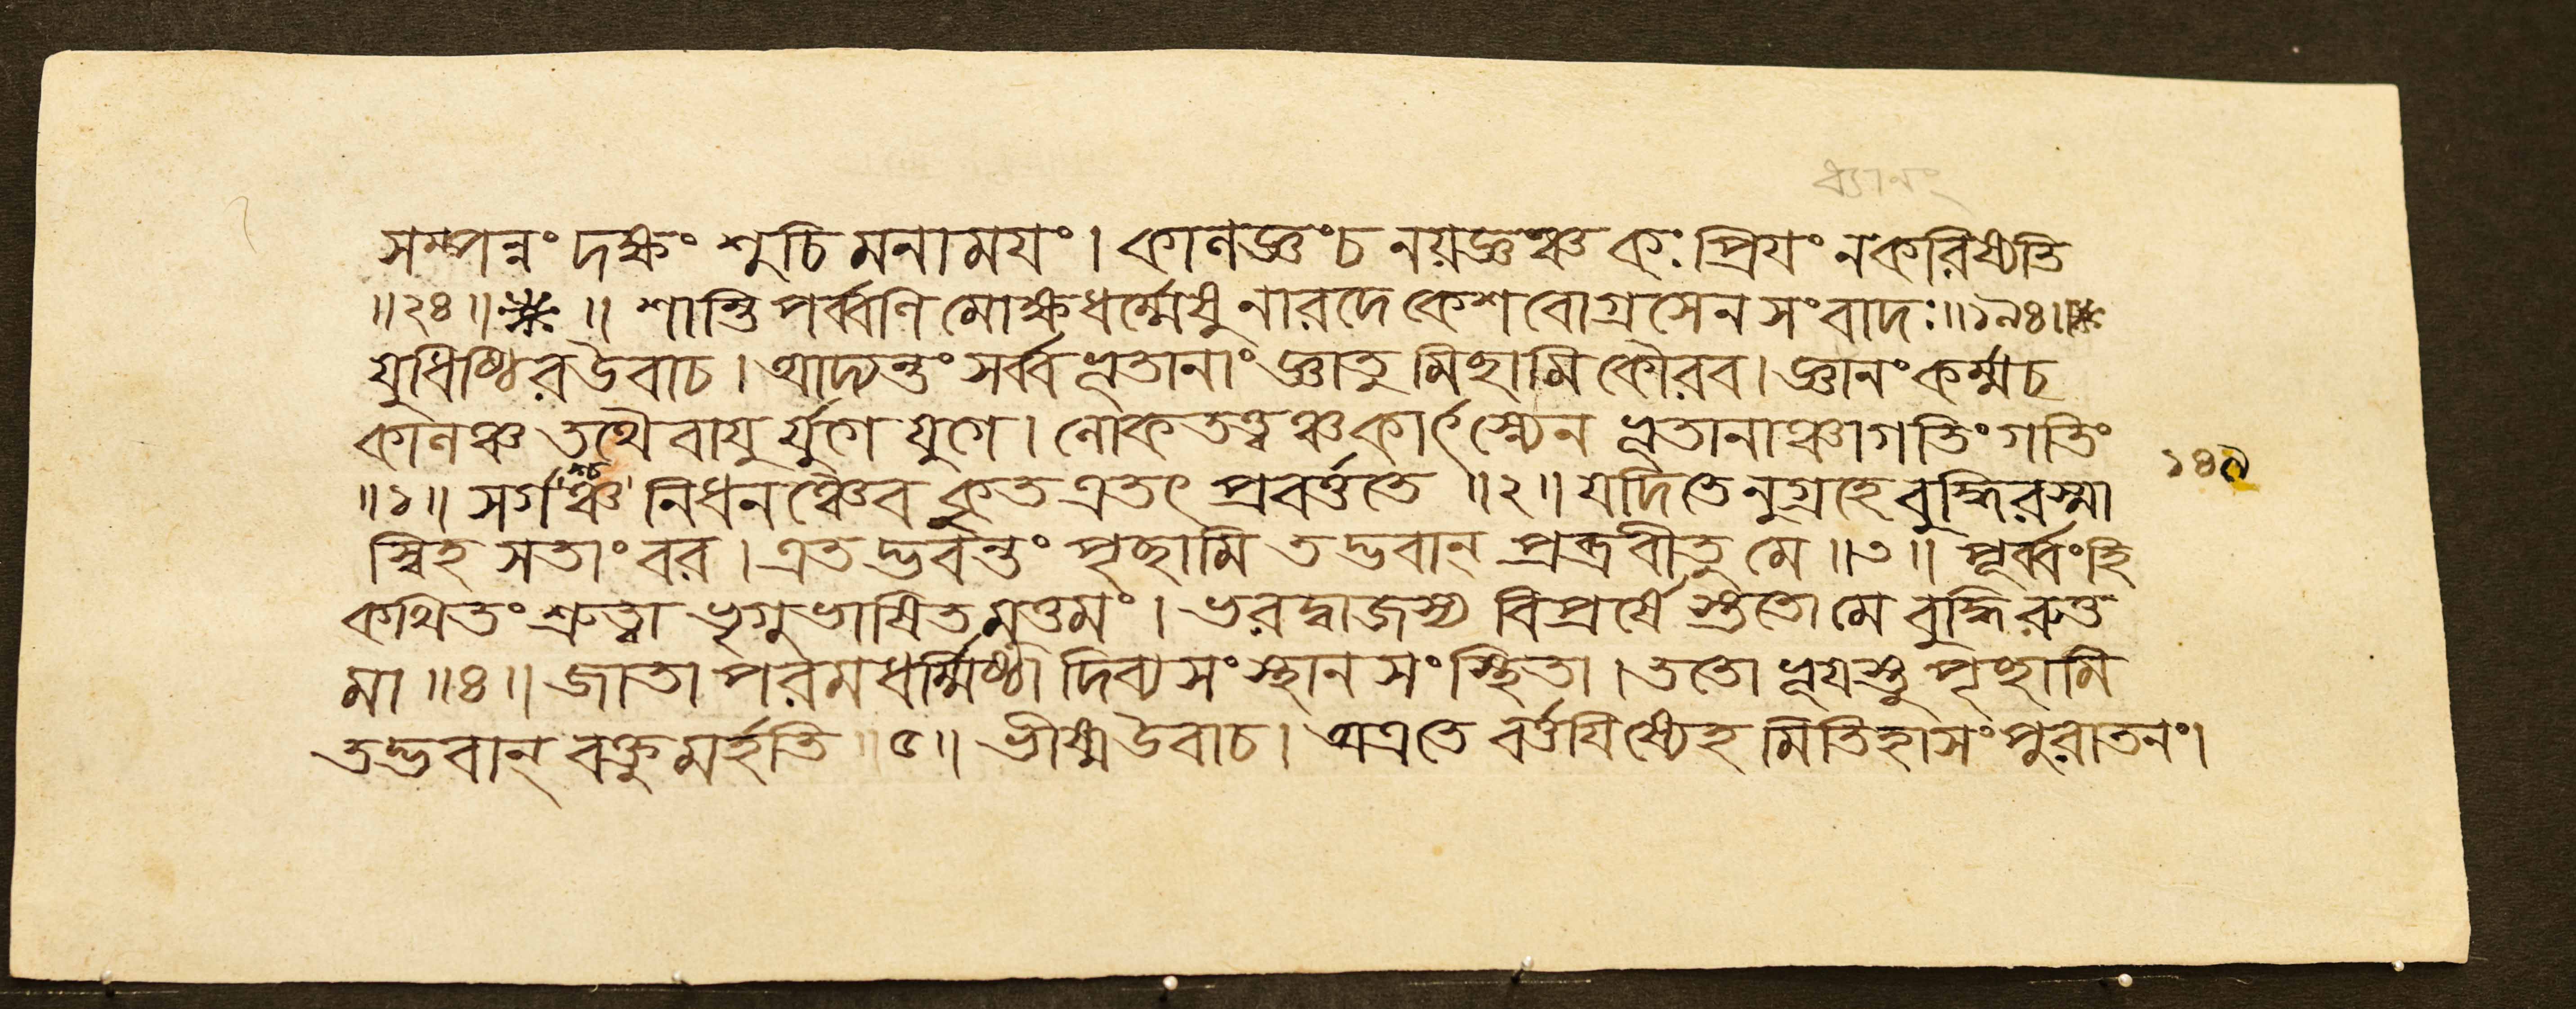 ধ্যানং
সম্পন্নং দক্ষং শুচি মনাময়ং। কালজ্ঞং চ নয়জ্ঞঞ্চ কঃ প্রিযং ন করিষ্যতি
॥২৪॥ ॥ শান্তিপর্ব্বণি মোক্ষধর্ম্মেষু নারদে কেশবোগ্রসেন সংবাদঃ॥১৯৪॥
যুধিষ্ঠির উবাচ। আদ্যন্তং সর্ব্বভূতানাং জ্ঞাতু মিছামি কৌরব। জ্ঞানং কর্ম্ম চ
কালঞ্চ তথৈবাযুর্যুগে যুগে। লোকতত্ত্বঞ্চ কার্ৎস্ন্যেন ভূতানাঞ্চাগতিং গতিং
॥১॥ সর্গঞ্চ নিধনঞ্চৈব কুত এতৎ প্রবর্ত্ততে ॥২॥ যদি তেনুগ্রহে বুদ্ধিরস্মা
স্বিহ সতাং বর। এতদ্ভবন্তং পৃছামি তদ্ভবান্ প্রব্রবীতু মে ॥৩॥ পূর্ব্বং হি
কথিতং শ্রুত্বা ভৃগুভাষিত মুত্তমং। ভরদ্বাজস্য বিপ্রর্ষে স্ততো মে বুদ্ধিরুত্ত
মা ॥৪॥ জাতা পরমধর্ম্মিষ্ঠা দিব্যসংস্থানসংস্থিতা। ততো ভূযস্তু পৃছামি
তদ্ভবান্ বক্তুমর্হতি ॥৫॥ ভীষ্ম উবাচ। অত্র তে বর্ত্তযিষ্যেহ মিতিহাসং পুরাতনং।
১৪৯